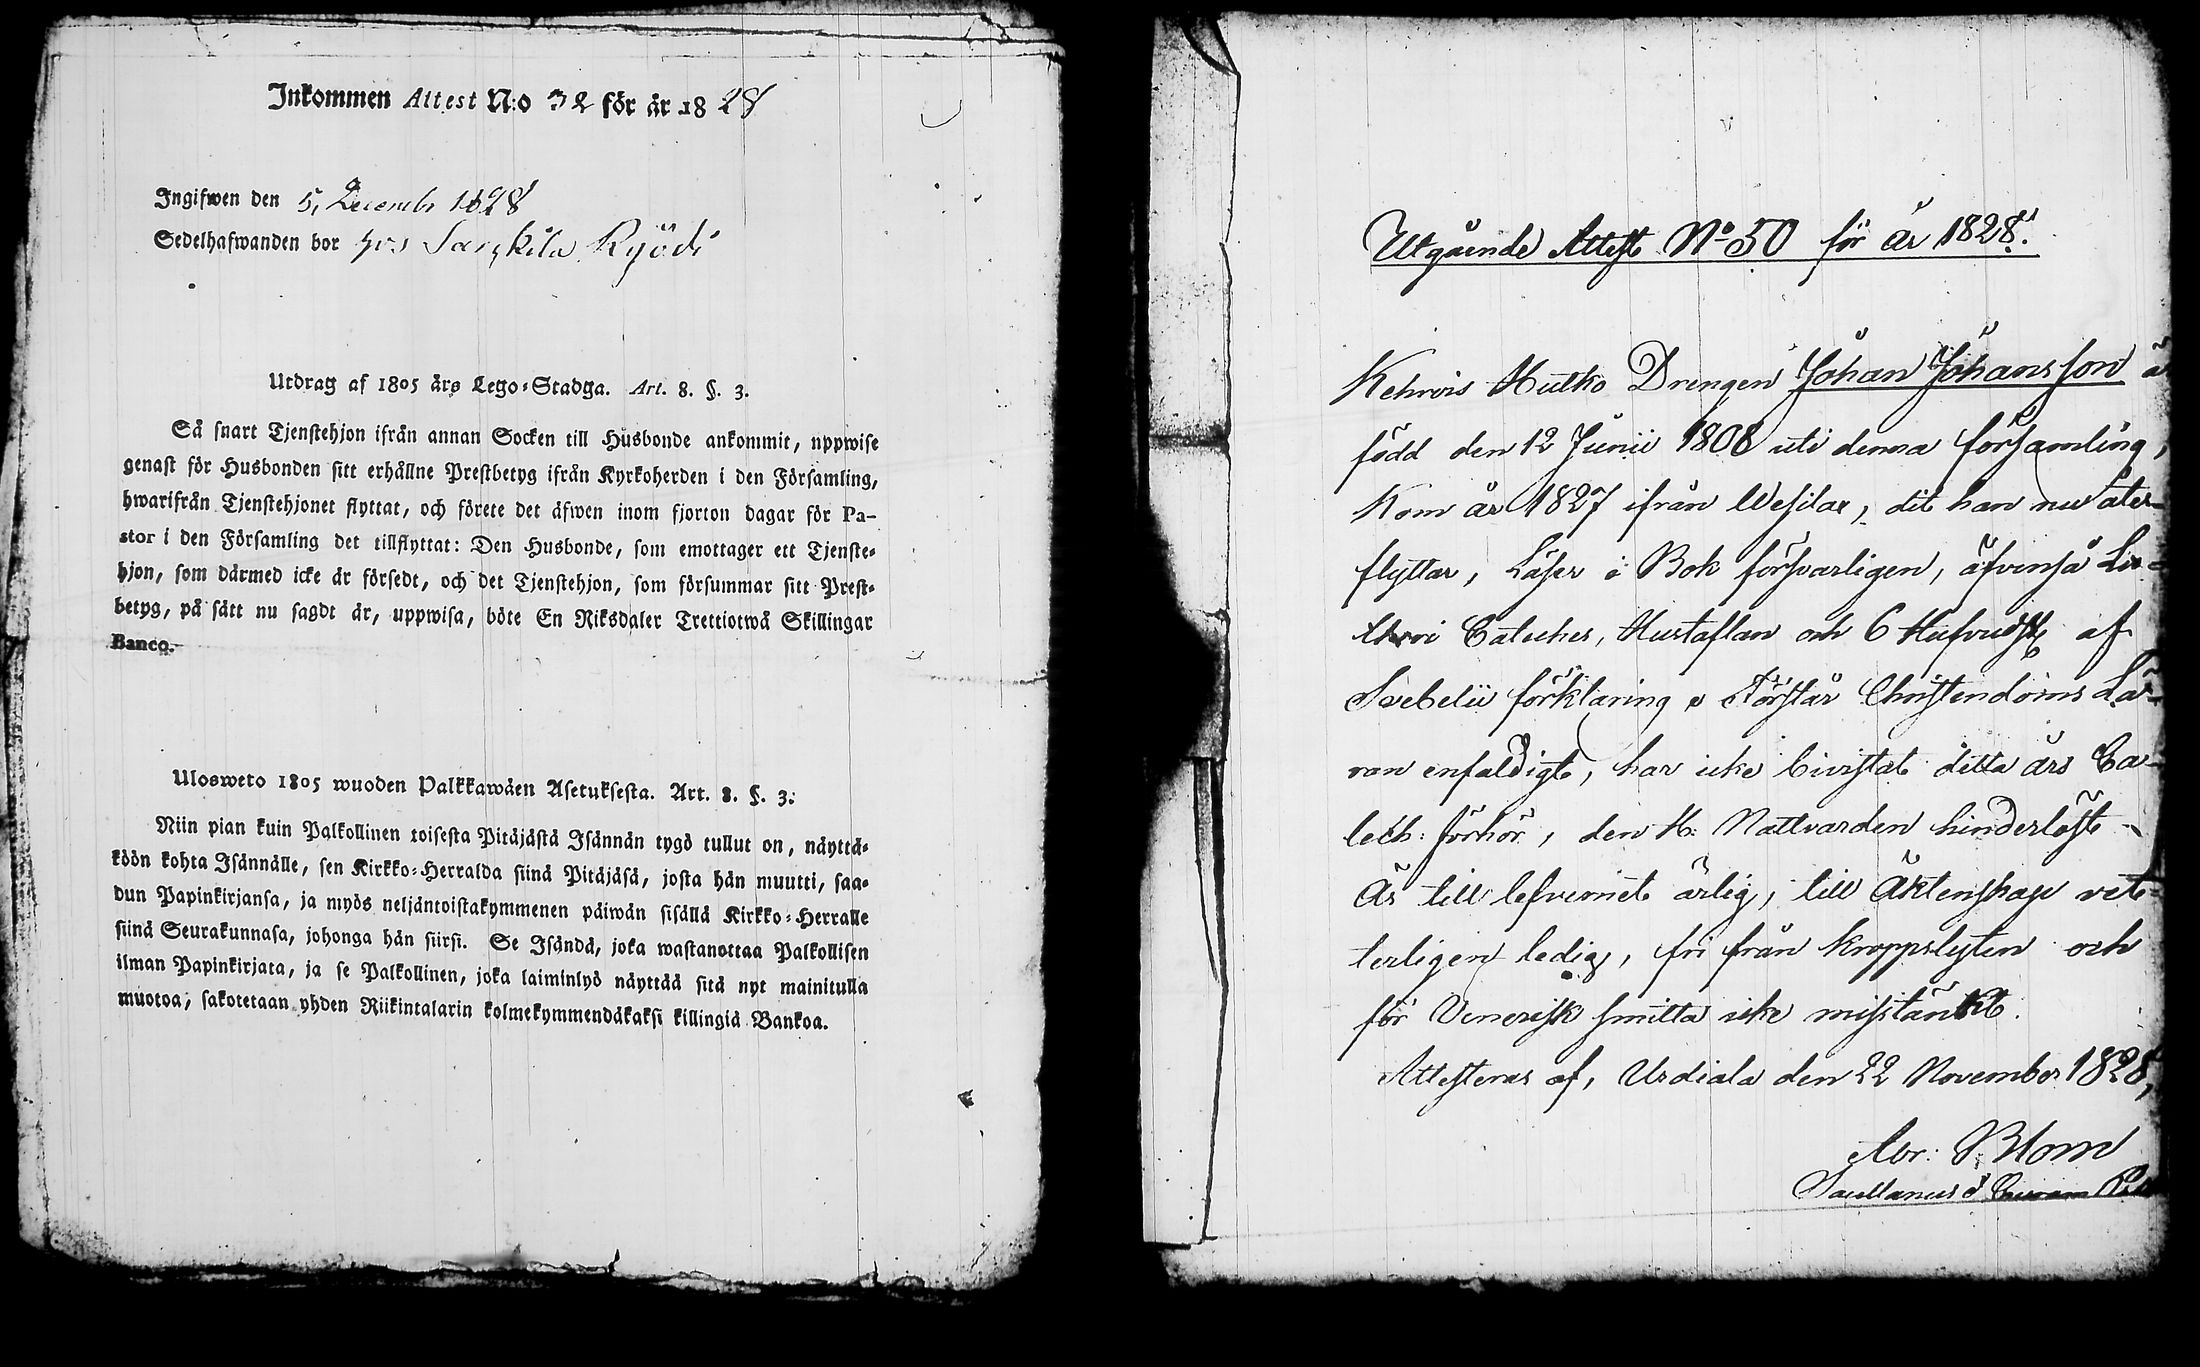 Inkommen Attest N:o 32 för år 1828
Ingifwen den 5, Decembr 1828
Sedelhafwanden bor hos Sarkila Kyödi
Utdrag af 1805 års Lego-Stadga. Art. 8. §. 3.
Så snart Tjenstehjon ifrån annan Socken till Husbonde ankommit, uppwise
genast för Husbonden sitt erhållne Prestbetyg ifrån Kyrkoherden i den Församling,
hwarifrån Tjenstehjonet flyttat, och förete det äfwen inom fjorton dagar för Pa-
stor i den Församling det tillflyttat: Den Husbonde, som emottager ett Tjenste-
hjon, som därmed icke är försedt, och det Tjenstehjon, som försummar sitt Prest-
betyg, på sätt nu sagdt är, uppwisa, böte En Riksdaler Trettiotwå Skillingar
Banco.
Ulosweto 1805 wuoden Palkkawäen Asetuksesta. Art. 8. §. 3.
Niin pian kuin Palkollinen toisesta Pitäjästä Isännän tygö tullut on, näyttä-
köön kohta Isännälle, sen Kirkko-Herralda siinä Pitäjäsä, josta hän muutti, saa-
dun Papinkirjansa, ja myös neljäntoistakymmenen päiwän sisällä Kirkko-Herralle
siinä Seurakunnasa, johonga hän siirsi. Se Isändä, joka wastanottaa Palkollisen
ilman Papinkirjata, ja se Palkollinen, joka laiminlyö näyttää sitä nyt mainitulla
muotoa, sakotetaan yhden Riikintalarin kolmekymmendäkaksi killingiä Bankoa.
Utgående Attest No 50 för år 1828.
Kehrois Hutko Drengen Johan Johansson ä
född den 12 Junii 1808 uti denna församling,
Kom år 1827 ifrån Wesilax, dit han nu åter-
flyttar, Läser i Bok försvarligen, äfvenså Lu-
theri Cateches, Hustaflan och 6 Hufvudst af
Svebelii förklaring, Förstår Christendoms Lä-
ran enfaldigt, har icke bivistat detta års Ca-
tech: förhör, den H: Nattvarden hinderlöst
Är till lefvernet ärlig, till Äktenskap vet-
terligen ledig, fri från kroppslyten och
för Venerisk smitta icke misstänkt.
Attesteras af, Urdiala den 22 November 1828,
Abr: Blom
Sacellanus &